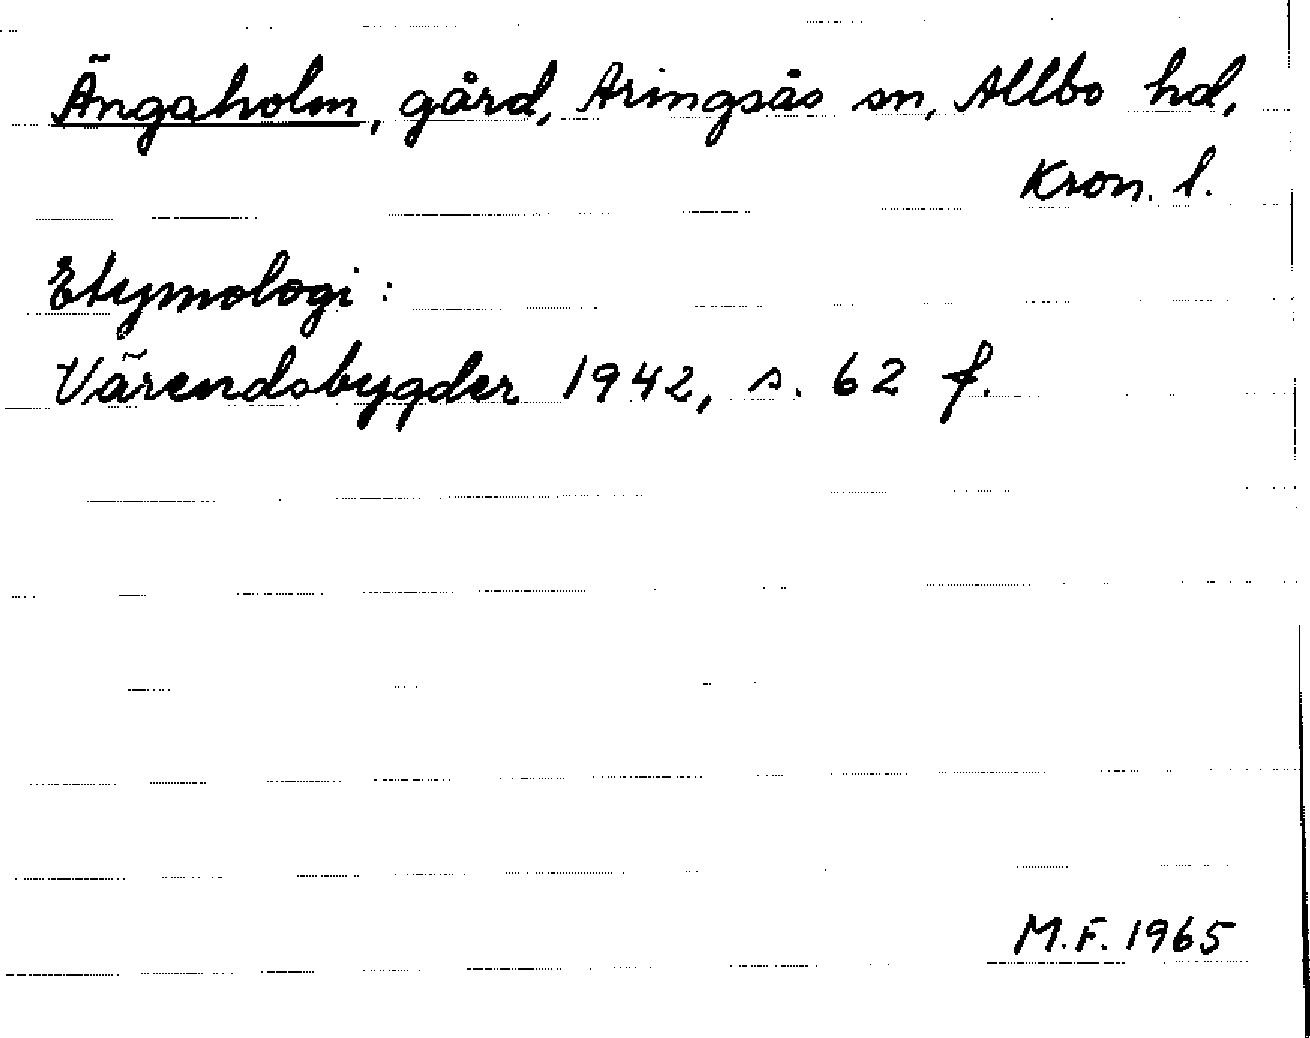 Ängaholm, gård, Aringsås sn, Allbo hd,
Kron. l.
Etymologi:
Värendsbygder 1942, s. 62 f.
M.F. 1965